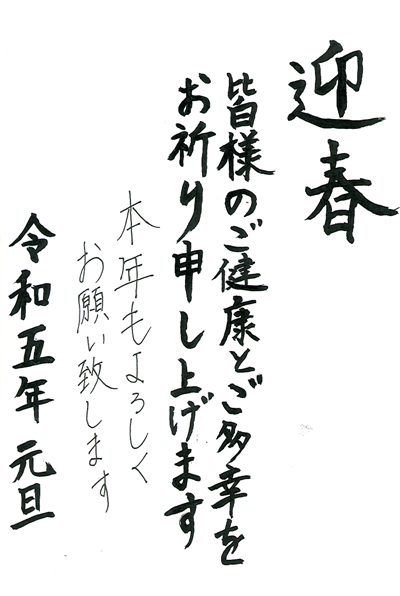 迎春
皆様のご健康とご多幸を
お祈り申し上げます
本年もよろしく
お願い致します
令和五年 元旦